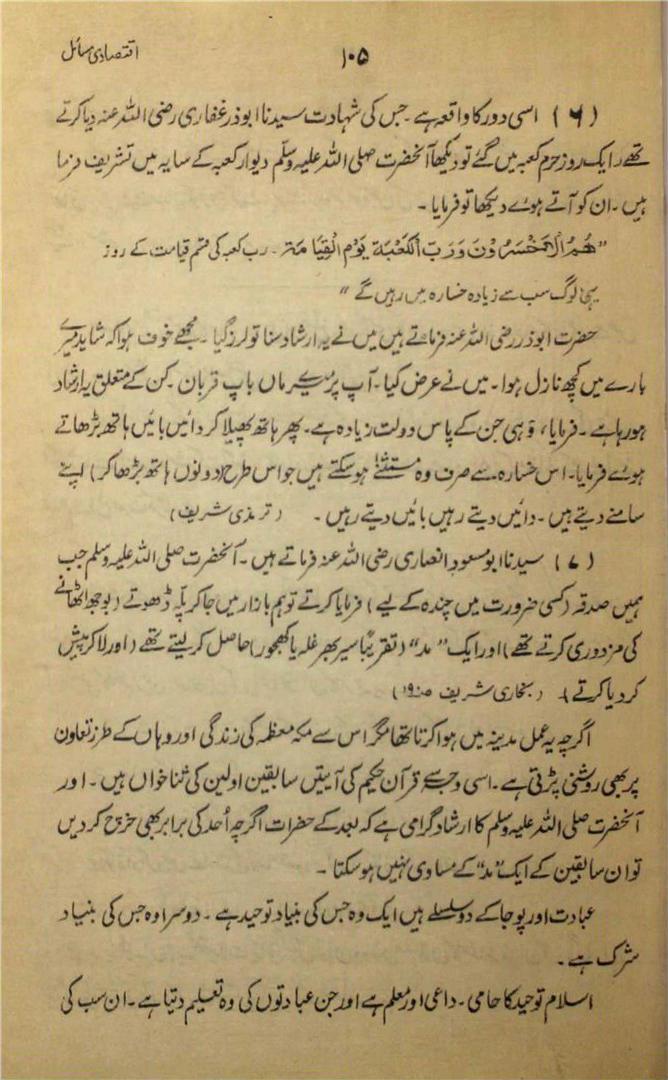 ۱۰۵
اقتصادی مسائل
(۶) اسی دور کا واقعہ ہے ۔ جس کی شہادت سیدنا ابوذر غفاری رضی اللہ عنہ دیا کرتے
تھے ۔ ایک روز حرم کعبہ میں گئے تو دیکھا آنحضرت صلی اللہ علیہ وسلّم دیوار کعبہ کے سایہ میں تشریف فرما
ہیں ۔ ان کو آتے ہوئے دیکھا تو فرمایا ۔
”هُمُ الْاَخْسَرُوْنَ وَرَبِّ الْكَعْبَةِ يَوْمَ الْقِيَامَةِ ۔ رب کعبہ کی قسم قیامت کے روز
یہی لوگ سب سے زیادہ خسارہ میں رہیں گے “
حضرت ابوذر رضی اللہ عنہ فرماتے ہیں میں نے یہ ارشاد سنا تو لرز گیا ۔ مجھے خوف ہوا کہ شاید میرے
بارے میں کچھ نازل ہوا ۔ میں نے عرض کیا ۔ آپ پر میرے ماں باپ قربان ۔ کن کے متعلق یہ ارشاد
ہو رہا ہے ۔ فرمایا ، وہی جن کے پاس دولت زیادہ ہے ۔ پھر ہاتھ پھیلا کر دائیں بائیں ہاتھ بڑھاتے
ہوئے فرمایا ۔ اس خسارہ سے صرف وہ مستثنیٰ ہو سکتے ہیں جو اس طرح (دونوں ہاتھ بڑھا کر) اپنے
سامنے دیتے ہیں ۔ دائیں دیتے رہیں بائیں دیتے رہیں ۔ (ترمذی شریف)
(۷) سیدنا ابو مسعود انصاری رضی اللہ عنہ فرماتے ہیں ۔ آنحضرت صلی اللہ علیہ وسلم جب
ہمیں صدقہ (کسی ضرورت میں چندہ کے لیے) فرمایا کرتے تو ہم بازار میں جا کر پلّہ ڈھوتے (بوجھ اٹھانے
کی مزدوری کرتے تھے) اور ایک ”مد“ (تقریباً سیر بھر غلہ یا کھجور) حاصل کر لیتے تھے (اور لا کر پیش
کر دیا کرتے) ۔ (بخاری شریف ص ۱۹۰)
اگرچہ یہ عمل مدینہ میں ہوا کرتا تھا مگر اس سے مکہ معظمہ کی زندگی اور وہاں کے طرز تعاون
پر بھی روشنی پڑتی ہے ۔ اسی وجہ سے قرآن حکیم کی آیتیں سابقین اولین کی ثنا خواں ہیں ۔ اور
آنحضرت صلی اللہ علیہ وسلم کا ارشاد گرامی ہے کہ بعد کے حضرات اگرچہ اُحد کی برابر بھی خرچ کر دیں
تو ان سابقین کے ایک ”مد“ کے مساوی نہیں ہو سکتا ۔
عبادت اور پوجا کے دو سلسلے ہیں ایک وہ جس کی بنیاد توحید ہے ۔ دوسرا وہ جس کی بنیاد
شرک ہے ۔
اسلام توحید کا حامی ۔ داعی اور معلم ہے اور جن عبادتوں کی وہ تعلیم دیتا ہے ۔ ان سب کی